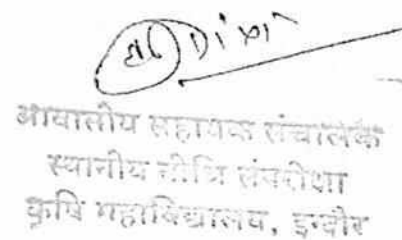 Dixi
आवासीय सहायक संचालक
स्थानीय निधि संपरीक्षा
कृषि महाविद्यालय, इन्दौर